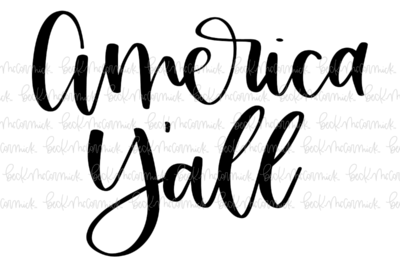 america
y'all